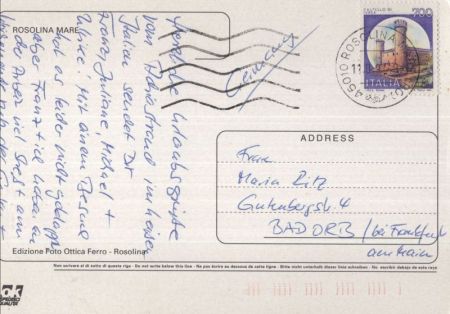 ROSOLINA MARE
CASTELLO DI
700
ITALIA
45010 ROSOLINA
Germany
Herzliche Urlaubsgrüße
vom Adriastrand im heißen
Italien sendet Dir
Franz, Juliane, Michael +
Ulrike! Mit einem Besuch
hat es leider nicht geklappt
aber Franz + ich haben
in der Arbeit viel Streß
ADDRESS
Frau
Maria Ritz
Gutenbergstr. 4
BAD ORB / bei Frankfurt
am Main
Edizione Foto Ottica Ferro - Rosolina
Non scrivere al di sotto di questa riga - Do not write below this line - Ne pas écrire au dessous de cette ligne - Bitte nicht unterhalb dieser linie schreiben - No escribir debajo de esta raya
OK